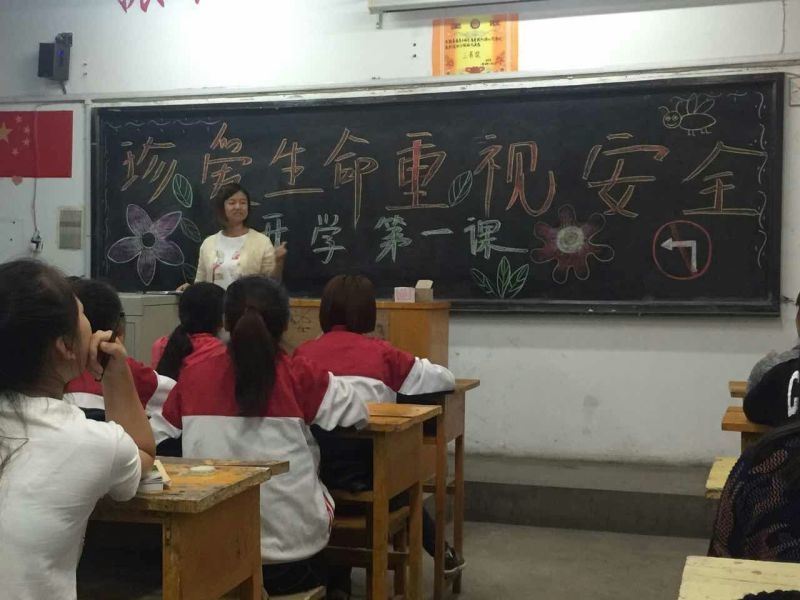 珍爱生命重视安全
开学第一课
三等奖
C